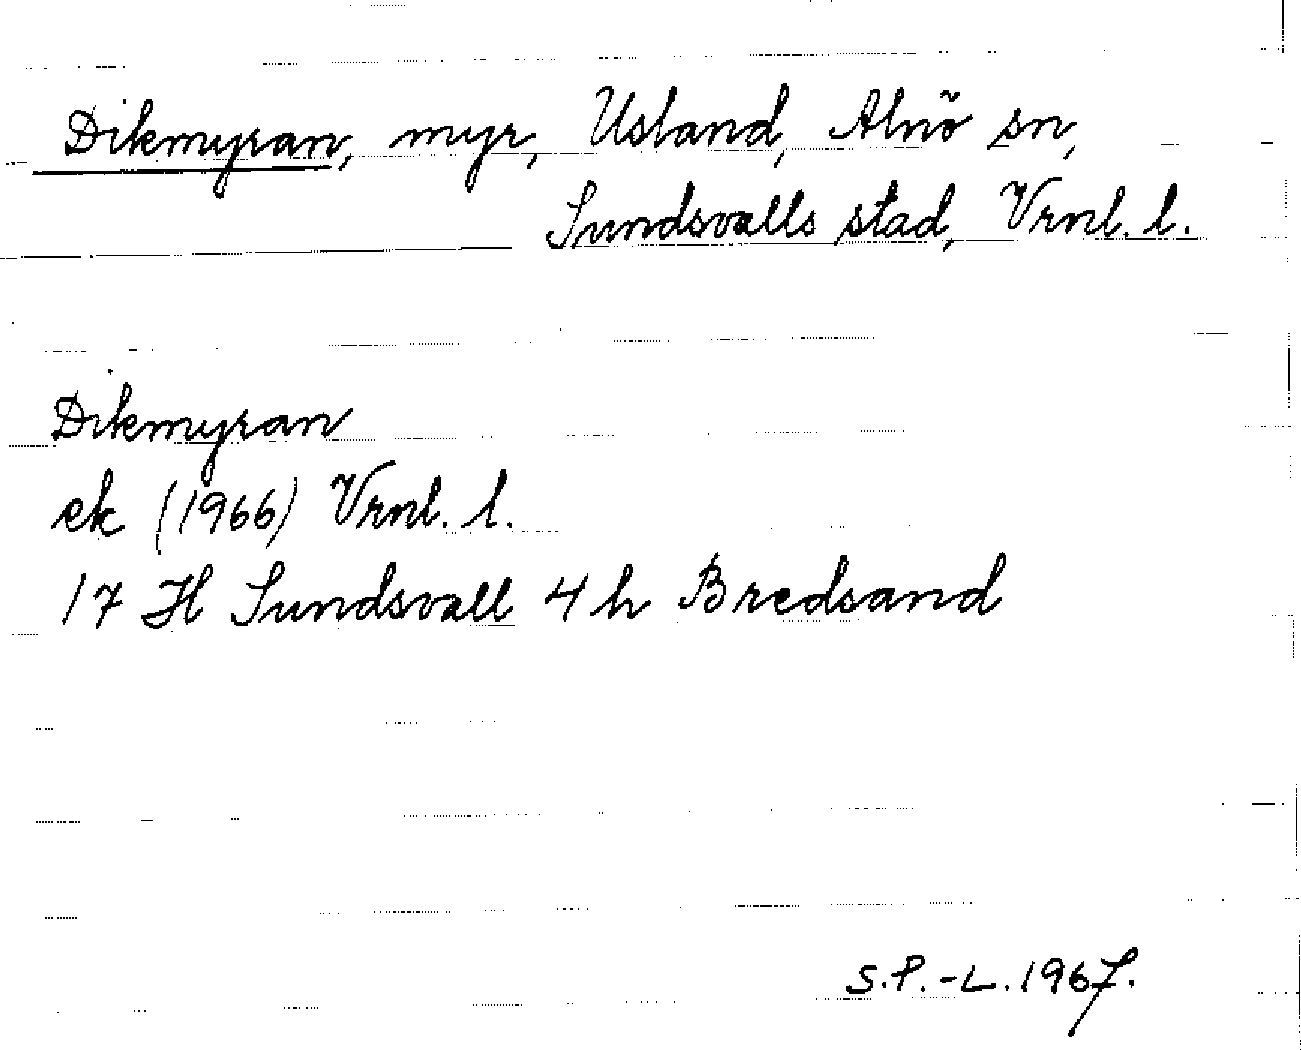 Dikmyran, myr, Usland, Alnö sn,
Sundsvalls stad, Vrnl. l.
Dikmyran
ek (1966) Vrnl. l.
17 H Sundsvall 4 h Bredsand
S.P.-L. 1967.